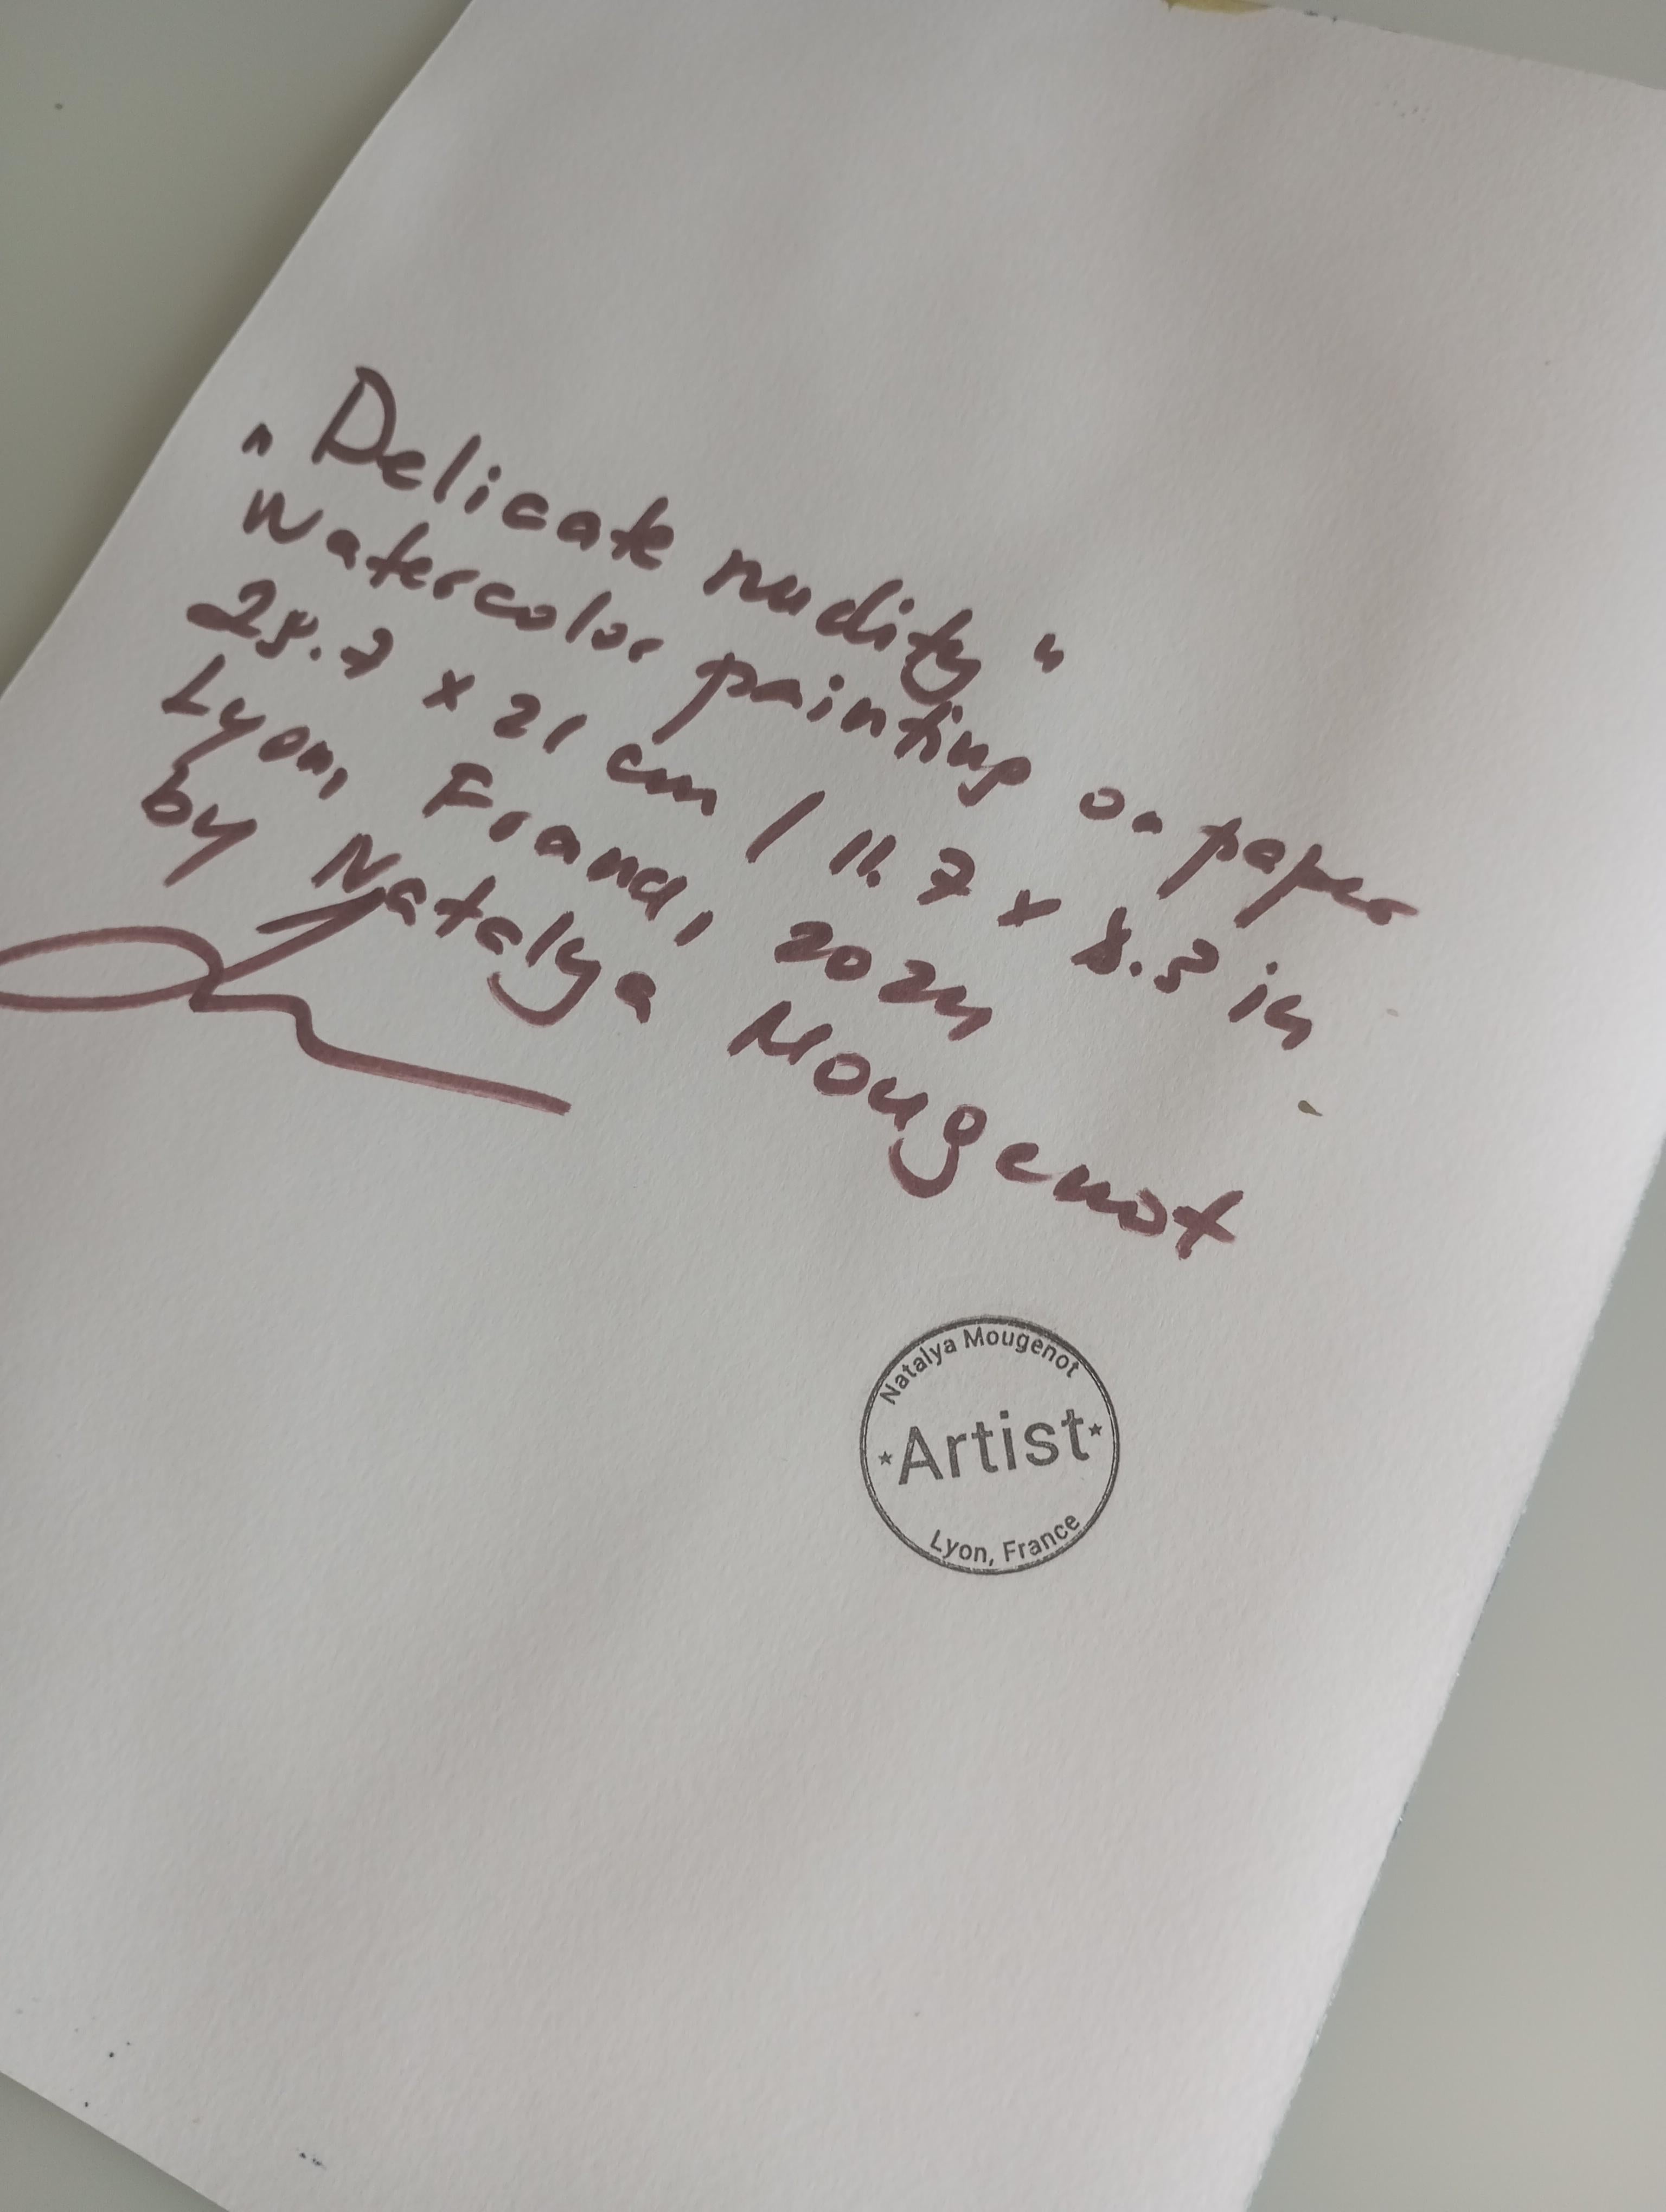 "Delicate nudity"
Watercolor painting on paper
29.7 x 21 cm / 11.7 x 8.3 in
Lyon, France, 2024
by Natalya Mougenot
Natalya Mougenot
Artist
Lyon, France